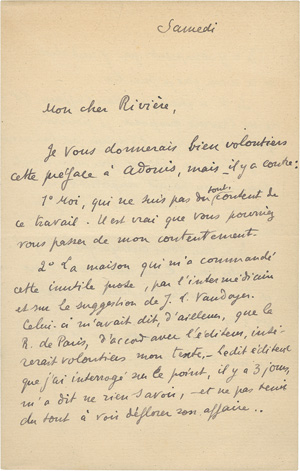 Samedi
Mon cher Rivière,
Je vous donnerais bien volontiers
cette préface à Adonis, mais il y a contre :
1° Moi, qui ne suis pas du tout content de
ce travail. Il est vrai que vous pourriez
vous passer de mon contentement.
2° La maison qui m'a commandé
cette inutile prose, par l'intermédiaire
et sur la suggestion de J. L. Vaudoyer.
Celui-ci m'avait dit, d'ailleurs, que la
R. de Paris, d'accord avec l'éditeur, insé-
rerait volontiers mon texte, – Ledit éditeur
que j'ai interrogé sur le point, il y a 3 jours,
m'a dit ne rien savoir, – et ne pas tenir
du tout à voir déflorer son affaire..